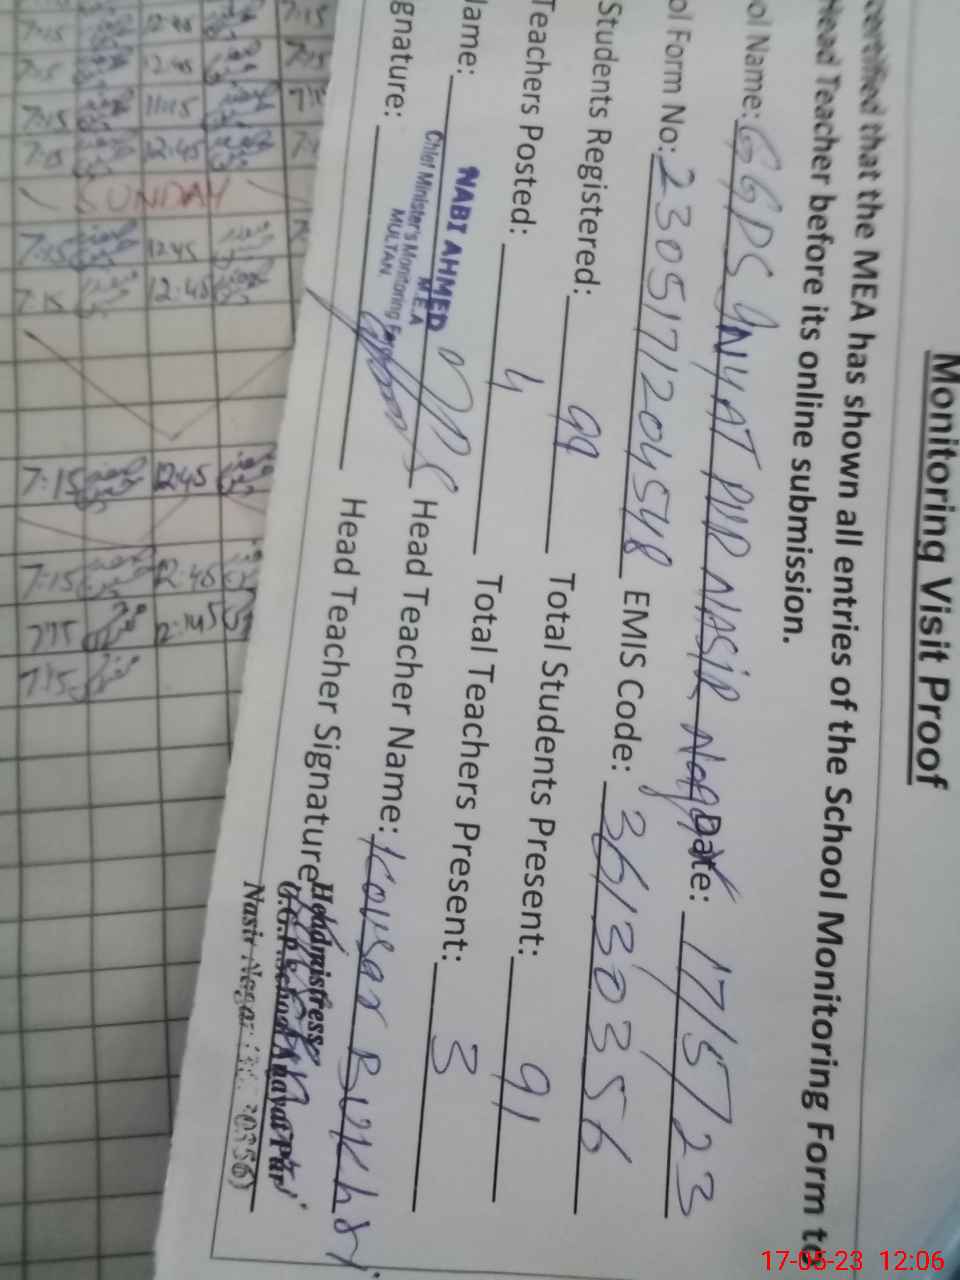 Monitoring Visit Proof
certified that the MEA has shown all entries of the School Monitoring Form to
Head Teacher before its online submission.
ol Name: GGPS INYAT PUR NASIR Nagar Date: 17/5/23
ol Form No: 230517120454 EMIS Code: 36130356
Students Registered: 99 Total Students Present: 91
Teachers Posted: 4 Total Teachers Present: 3
Name: NABI AHMED Head Teacher Name: Kousar Bukhari
M.E.A
Chief Minister's Monitoring
MULTAN
gnature: Head Teacher Signature
Headmistress
G.G.P. School Anayat Pur
Nasir Nagar
7:15 12:45 7:15
7:15 12:45
7:15 11:15
7:15 12:45
SUNDAY
7:15 12:45
7:15 12:45
7:15 12:45
7:15 12:45
7:15 12:45
7:15
17-05-23 12:06